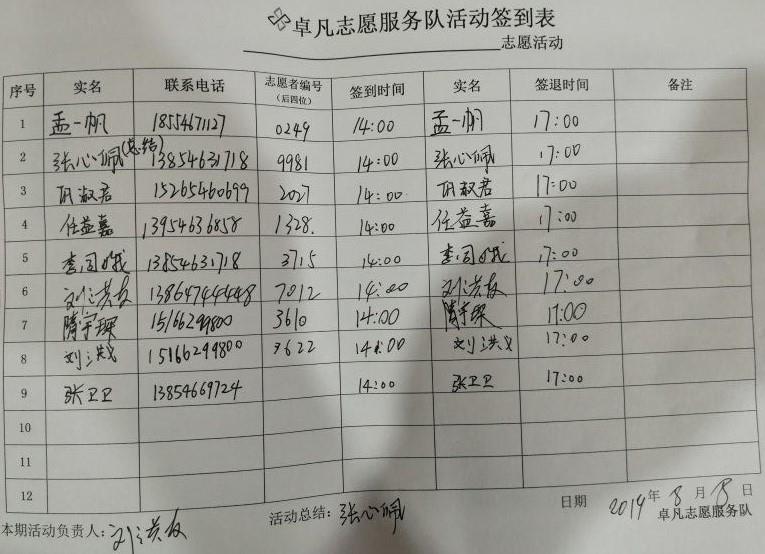 卓凡志愿服务队活动签到表
志愿活动
序号 实名 联系电话 志愿者编号（后四位） 签到时间 实名 签退时间 备注
1 孟一帆 18554671127 0249 14:00 孟一帆 17:00
2 张心佩(总结) 13854631718 9981 14:00 张心佩 17:00
3 胡淑君 15265460699 2027 14:00 胡淑君 17:00
4 任益嘉 13954636858 1328. 14:00 任益嘉 17:00
5 13854631718 3715 14:00 17:00
6 刘洪友 13864744448 7012 14:00 刘洪友 17:00
7 隋宇琛 15166299800 3610 14:00 隋宇琛 17:00
8 15166299800 3622 14:00 17:00
9 张卫卫 13854669724 14:00 张卫卫 17:00
10
11
12
本期活动负责人:刘洪友 活动总结:张心佩 日期 2019年8月 日
卓凡志愿服务队